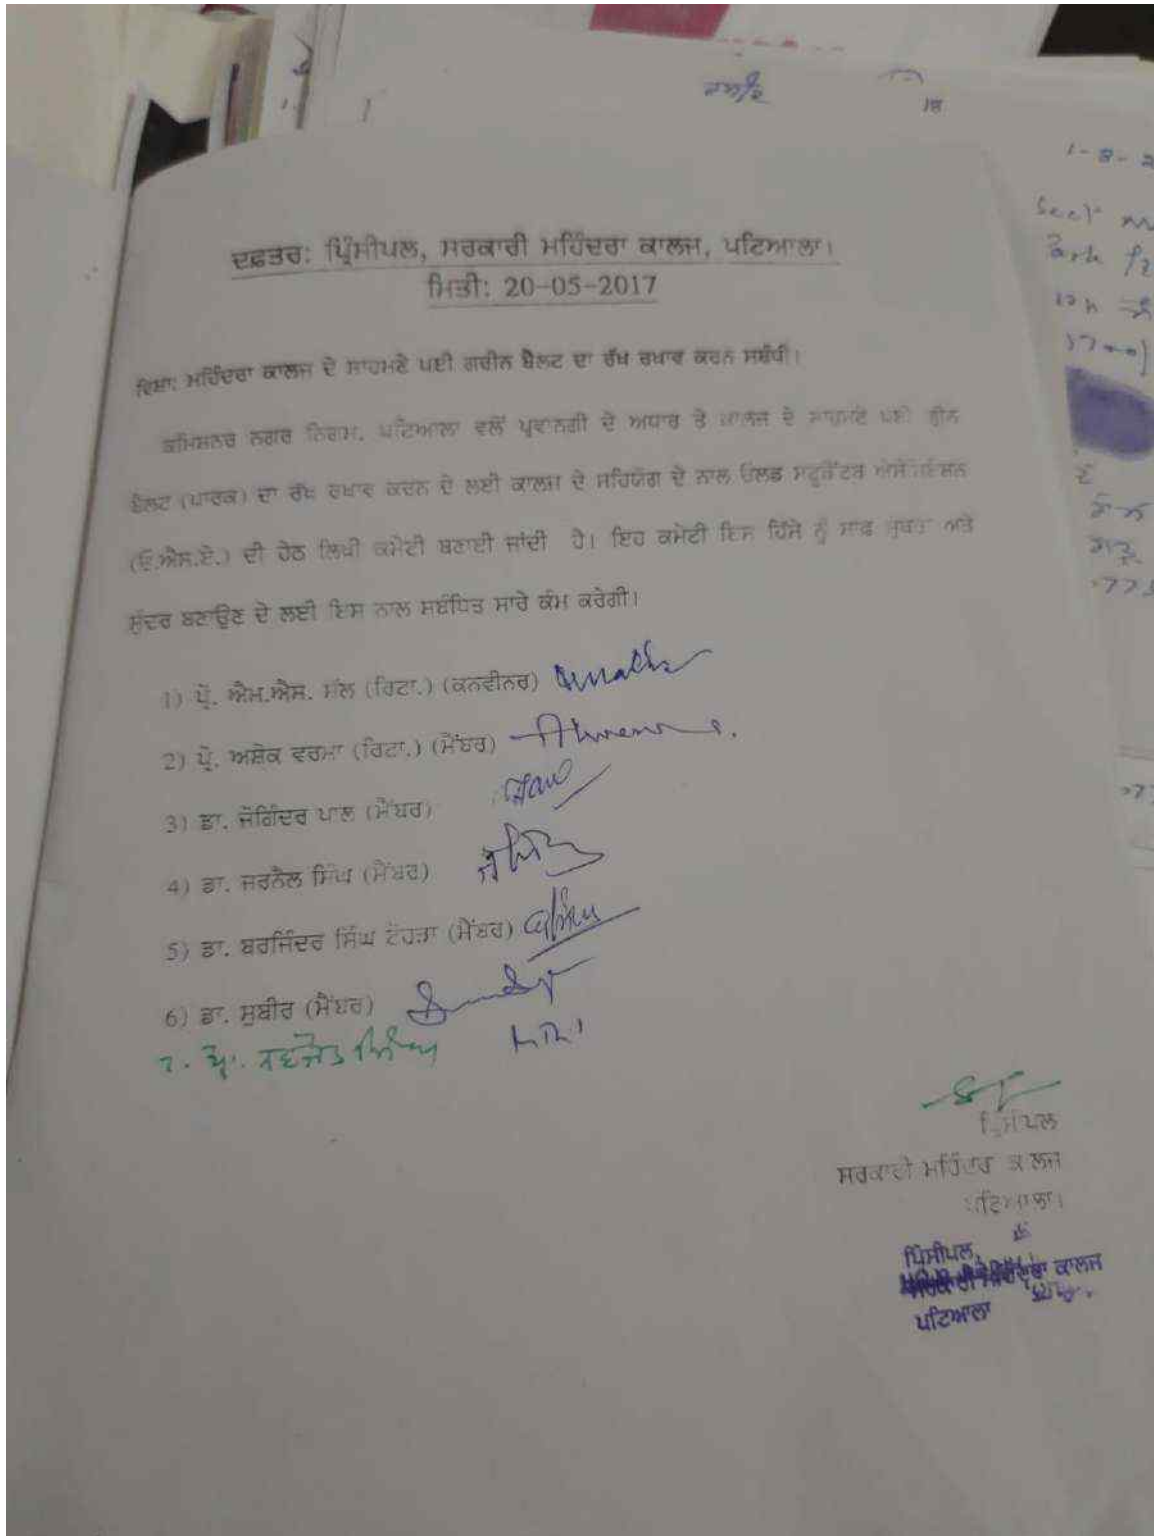 ਦਫ਼ਤਰ: ਪ੍ਰਿੰਸੀਪਲ, ਸਰਕਾਰੀ ਮਹਿੰਦਰਾ ਕਾਲਜ, ਪਟਿਆਲਾ।
ਮਿਤੀ: 20-05-2017
ਵਿਸ਼ਾ: ਮਹਿੰਦਰਾ ਕਾਲਜ ਦੇ ਸਾਹਮਣੇ ਪਈ ਗਰੀਨ ਬੈਲਟ ਦਾ ਰੱਖ ਰਖਾਵ ਕਰਨ ਸਬੰਧੀ।
ਕਮਿਸ਼ਨਰ ਨਗਰ ਨਿਗਮ, ਪਟਿਆਲਾ ਵਲੋਂ ਪ੍ਰਵਾਨਗੀ ਦੇ ਅਧਾਰ ਤੇ ਕਾਲਜ ਦੇ ਸਾਹਮਣੇ ਪਈ ਗ੍ਰੀਨ
ਬੈਲਟ (ਪਾਰਕ) ਦਾ ਰੱਖ ਰਖਾਵ ਕਰਨ ਦੇ ਲਈ ਕਾਲਜ ਦੇ ਸਹਿਯੋਗ ਦੇ ਨਾਲ ਓਲਡ ਸਟੂਡੈਂਟਸ ਐਸੋਸੀਏਸ਼ਨ
(ਓ.ਐਸ.ਏ.) ਦੀ ਹੇਠ ਲਿਖੀ ਕਮੇਟੀ ਬਣਾਈ ਜਾਂਦੀ ਹੈ। ਇਹ ਕਮੇਟੀ ਇਸ ਹਿੱਸੇ ਨੂੰ ਸਾਫ ਸੁਥਰਾ ਅਤੇ
ਸੁੰਦਰ ਬਣਾਉਣ ਦੇ ਲਈ ਇਸ ਨਾਲ ਸਬੰਧਿਤ ਸਾਰੇ ਕੰਮ ਕਰੇਗੀ।
1) ਪ੍ਰੋ. ਐਮ.ਐਸ. ਮੱਲ (ਰਿਟਾ.) (ਕਨਵੀਨਰ)
2) ਪ੍ਰੋ. ਅਸ਼ੋਕ ਵਰਮਾ (ਰਿਟਾ.) (ਮੈਂਬਰ)
3) ਡਾ. ਜੋਗਿੰਦਰ ਪਾਲ (ਮੈਂਬਰ)
4) ਡਾ. ਜਰਨੈਲ ਸਿੰਘ (ਮੈਂਬਰ)
5) ਡਾ. ਬਰਜਿੰਦਰ ਸਿੰਘ ਟੌਹੜਾ (ਮੈਂਬਰ)
6) ਡਾ. ਸੁਬੀਰ (ਮੈਂਬਰ)
7. ਪ੍ਰੋ. ਨਵਜੋਤ ਸਿੰਘ
ਪ੍ਰਿੰਸੀਪਲ
ਸਰਕਾਰੀ ਮਹਿੰਦਰਾ ਕਾਲਜ
ਪਟਿਆਲਾ।
ਪ੍ਰਿੰਸੀਪਲ,
ਸਰਕਾਰੀ ਮਹਿੰਦਰਾ ਕਾਲਜ
ਪਟਿਆਲਾ